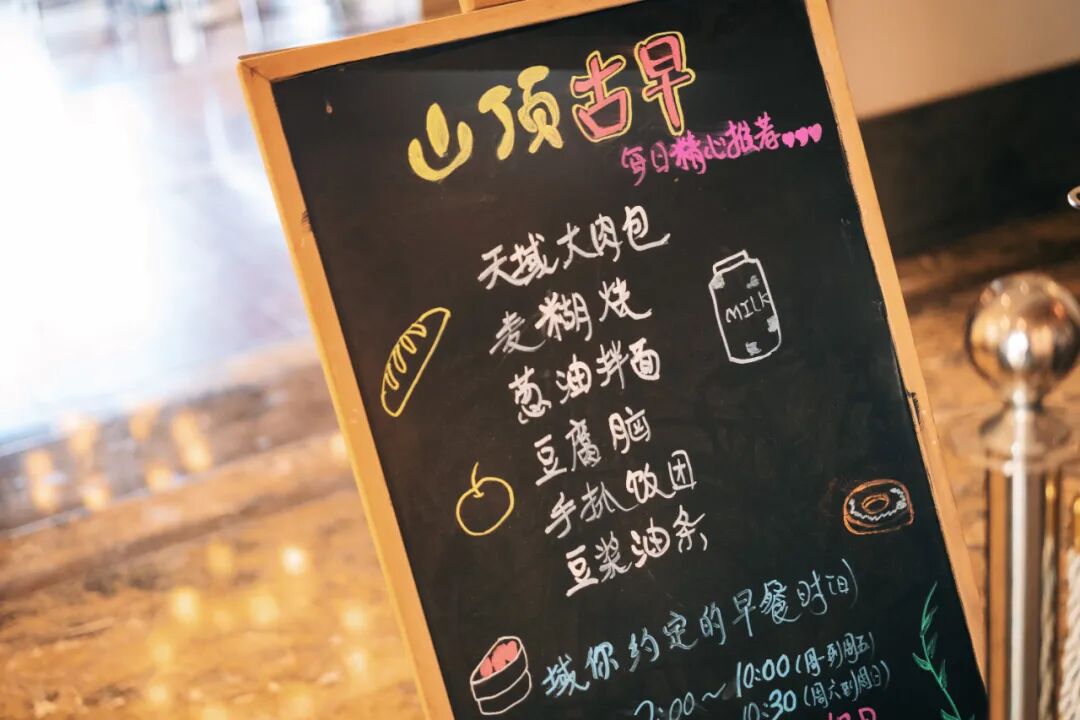 山顶古早
每日精心推荐
天域大肉包
麦糊烧
葱油拌面
MILK
豆腐脑
手扒饭团
豆浆油条
域你约定的早餐时间
7:00～10:00(周一到周五)
10:30(周六到周日)